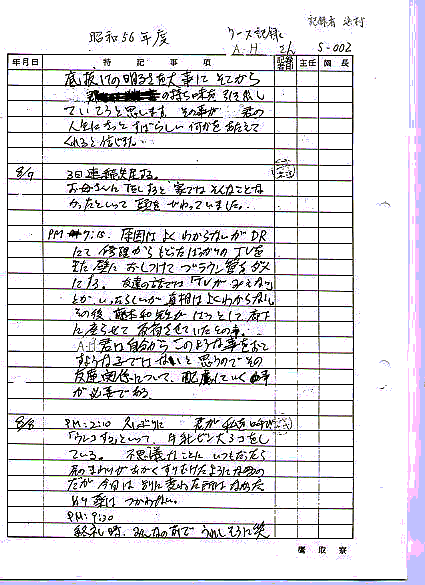 記録者
昭和56年度
ケース記録
A.H さん
S-002
年月日 特記事項 記録者印 主任 園長
底抜けの明るさを大事にそこから
の持ち味を引き出し
ていこうと思います。その事が 君の
人生にもっとすばらしい何かをあたえて
くれると信じたい
8/7 3日連続失尿する。
お母さんに話しすると家ではそんなことな
かったといって頭をかかえていました。
PM 7:15 原因はよくわからないがDR
にて修理からもどったばかりのTVを
また壁におしつけてブラウン管をダメ
にする。友達の話では「TVがみえない」
とかいったらしいが真相はよくわからない
その後、
に
A.H君は自分からこのような事をおこ
すような子ではないと思うのでその
友達関係について、配慮していく事
が必要である。
8/8 PM:2:10 久しぶりに 君が私を呼び
「ウンコする」といって、
している。不思議なことにいつもだったら
のまわりがあかくすりむけたようになるの
だが今日は別に変わった所はなかった
薬はつかわない。
PM:9:30
終礼時、みんなの前でうれしそうに笑
鷹取寮